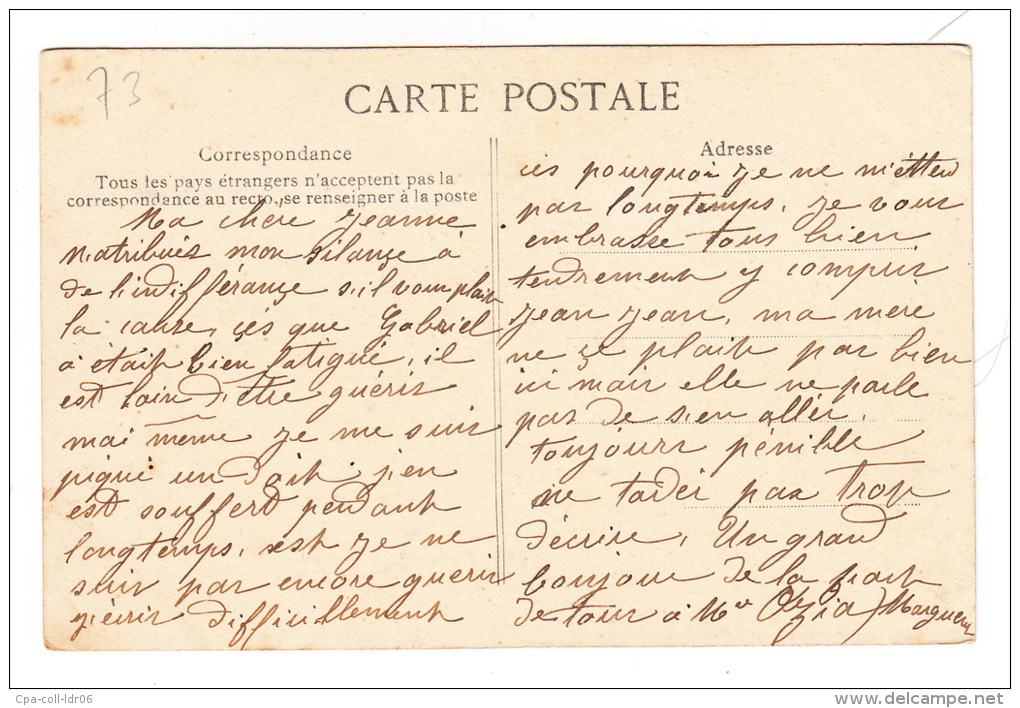 73
CARTE POSTALE
Correspondance
Tous les pays étrangers n'acceptent pas la
correspondance au recto, se renseigner à la poste
Ma chère Jeanne
n'atribués mon silançe à
de l'indifférançe s'il vous plait
la cause, çés que Gabriel
à était bien fatigué, il
est loin d'être guéris
moi même je me suis
piqué un doit j'en
est souffert pendant
longtemps, est je ne
suis pas encore guéris
j'écris difficillement
Adresse
cés pourquoi je ne m'étten
pas longtemps, je vous
embrasse tous bien
tendrement y compris
jean jean, ma mère
ne çe plait pas bien
ici mais elle ne parle
pas de s'en aller.
toujours pénible
ne tarder pas trop
d'écrire, Un grand
bonjour de la part
de tous à Mr Ozzia
Cpa-coll-ldr06
www.delcampe.net